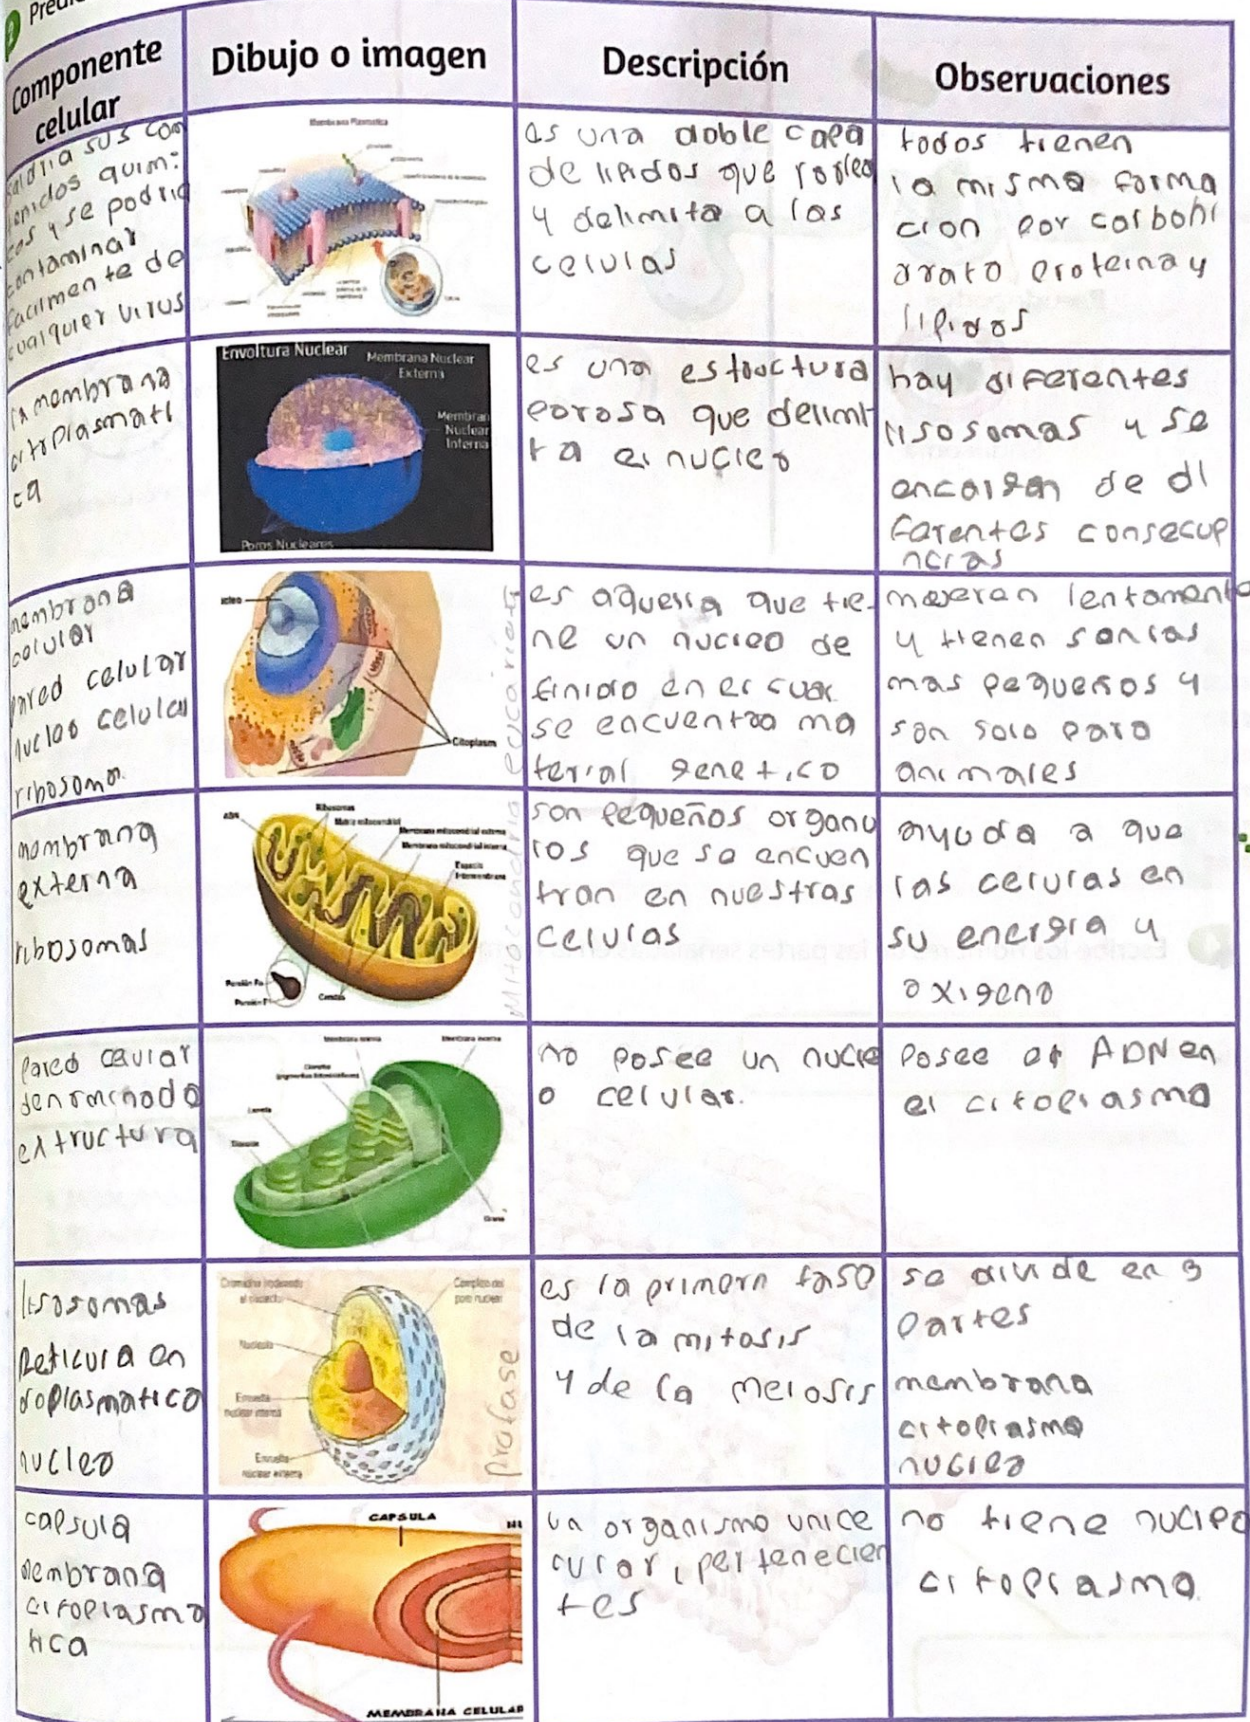 Componente celular
Dibujo o imagen
Descripción
Observaciones
saldria sus con
tenidos quimi
cos y se podria
contaminar
facilmente de
cualquier virus
Membrana Plasmatica
es una doble capa
de lipidos que rodea
y delimita a las
celulas
todos tienen
la misma forma
cion por carbohi
drato proteina y
lipidos
la membrana
citoplasmati
ca
Envoltura Nuclear
Membrana Nuclear
Externa
Membran
Nuclear
Interna
Poros Nucleares
es una estouctura
porosa que delimi
ta el nucleo
hay diferentes
lisosomas y se
encargan de di
ferentes consecue
ncias
membrana
celular
pared celular
nucleo celular
ribosoma.
Citoplasm
eucariota
es aquella que tie-
ne un nucleo de
finido en el cual
se encuentra ma
terial genetico
lentamente
y tienen
mas pequeños y
son solo para
animales
membrana
externa
ribosomas
ADN
Ribosomas
Matriz mitocondrial
Membrana mitocondrial externa
Membrana mitocondrial interna
Espacio
Intermembrana
Crestas
Mitocondria
son pequeños organu
los que se encuen
tran en nuestras
celulas
ayuda a que
las celulas en
su energia y
oxigeno
Pared celular
denominado
extructura
Membrana interna
Membrana externa
Grana
no posee un nucle
o celular.
Posee et ADN en
el citoplasma
lisosomas
Reticula en
doplasmatico
nucleo
Cromatina rodeando
al nucleolo
Complejo del
poro nuclear
Nucleolo
Envuelta
nuclear interna
Envuelta
nuclear externa
profase
es la primera fase
de la mitosis
y de la meiosis
se divide en 3
partes
membrana
citoplasma
nucleo
capsula
membrana
citoplasma
tica
CAPSULA
MEMBRANA CELULAR
un organismo unice
lular, pertenecien
tes
no tiene nucleo
citoplasma